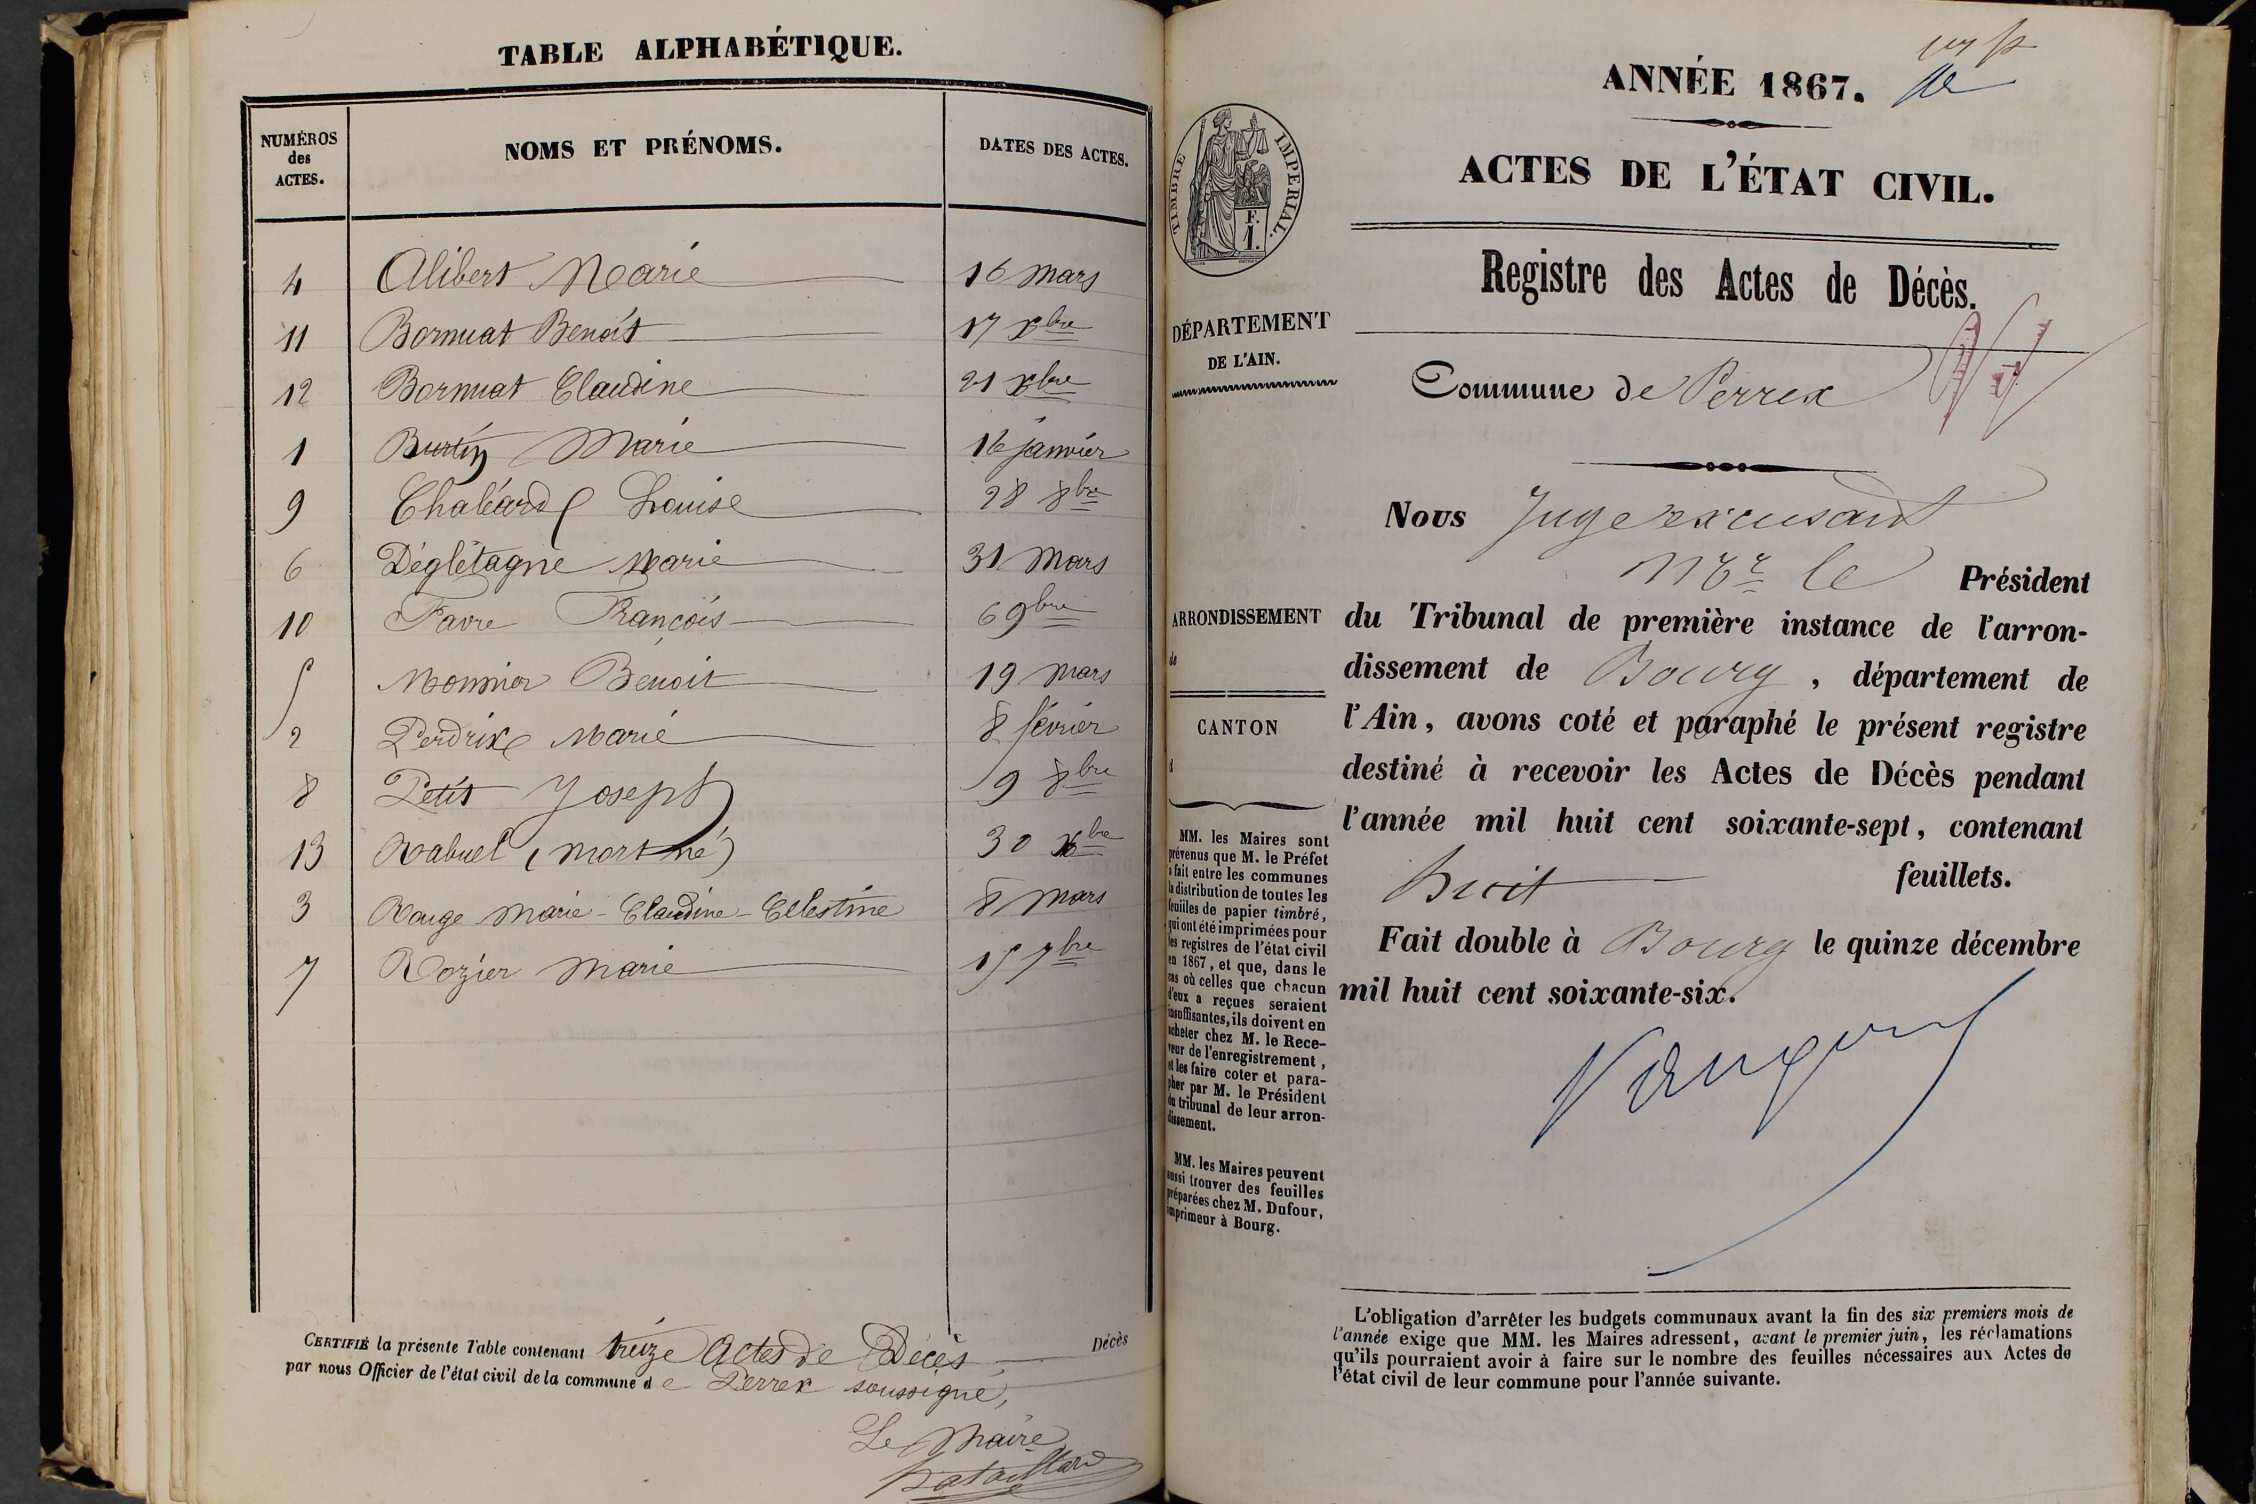 TABLE ALPHABÉTIQUE.
NUMÉROS
des
ACTES.
NOMS ET PRÉNOMS.
DATES DES ACTES.
4 Alibert Marie 16 mars
11 Bornuat Benoît 17 xbre
12 Bornuat Claudine 21 xbre
1 Burtin Marie 16 janvier
9 Chaléard Louise 28 8bre
6 Déglétagne Marie 31 Mars
10 Favre François 6 9bre
5 Monnier Benoit 19 mars
2 Perdrix Marie 8 février
8 Petit Joseph 9 8bre
13 Rabuel (mort né) 30 xbre
3 Rouge Marie-Claudine-Célestine 8 Mars
7 Rozier Marie 15 7bre
CERTIFIÉ la présente Table contenant treize Actes de Décès Décès
par nous Officier de l'état civil de la commune de Perrex soussigné,
Le Maire
Bataillard
ANNÉE 1867.
ACTES DE L'ÉTAT CIVIL.
TIMBRE IMPÉRIAL.
F.
1.
Registre des Actes de Décès.
DÉPARTEMENT
DE L'AIN.
Commune de Perrex
Nous Juge excusant
Mr le Président
ARRONDISSEMENT
de
CANTON
d
du Tribunal de première instance de l'arron-
dissement de Bourg, département de
l'Ain, avons coté et paraphé le présent registre
destiné à recevoir les Actes de Décès pendant
l'année mil huit cent soixante-sept, contenant
huit feuillets.
Fait double à Bourg le quinze décembre
mil huit cent soixante-six.
MM. les Maires sont
prévenus que M. le Préfet
a fait entre les communes
la distribution de toutes les
feuilles de papier timbré,
qui ont été imprimées pour
les registres de l'état civil
en 1867, et que, dans le
cas où celles que chacun
d'eux a reçues seraient
insuffisantes, ils doivent en
acheter chez M. le Rece-
veur de l'enregistrement,
et les faire coter et para-
pher par M. le Président
du tribunal de leur arron-
dissement.
MM. les Maires peuvent
aussi trouver des feuilles
préparées chez M. Dufour,
imprimeur à Bourg.
L'obligation d'arrêter les budgets communaux avant la fin des six premiers mois de
l'année exige que MM. les Maires adressent, avant le premier juin, les réclamations
qu'ils pourraient avoir à faire sur le nombre des feuilles nécessaires aux Actes de
l'état civil de leur commune pour l'année suivante.